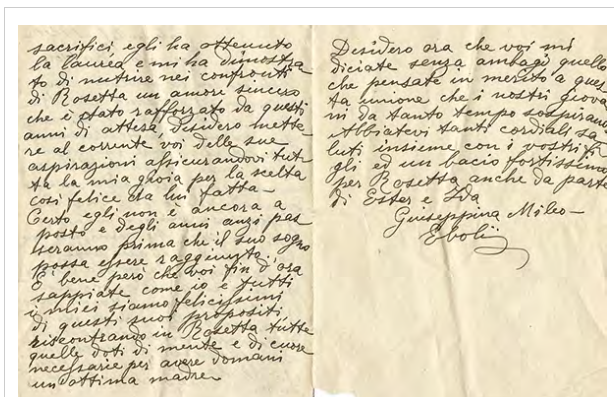 sacrifici, egli ha ottenuto
la laurea e mi ha dimostra
to di nutrire nei confronti
di Rosetta un amore sincero
che è stato rafforzato da questi
anni di attesa, desidero mette
re al corrente voi delle sue
aspirazioni assicurandovi tut
ta la mia gioia per la scelta
così felice da lui fatta-
Certo egli non è ancora a
posto e degli anni anzi pas
seranno prima che il suo sogno
possa essere raggiunto.
È bene però che voi fin d'ora
sappiate come io e tutti
i miei siamo felicissimi
di questi suoi propositi,
riscontrando in Rosetta tutte
quelle doti di mente e di cuore
necessarie per avere domani
un'ottima madre
Desidero ora che voi mi
diciate senza ambagi, quello
che pensate in merito a ques
ta unione che i nostri giova
ni da tanto tempo sospirano
Abbiatevi tanti cordiali sa
luti insieme con i vostri fi
gli ed un bacio fortissimo
per Rosetta anche da parte
di Ester e Ida
Giuseppina Mileo-
Eboli